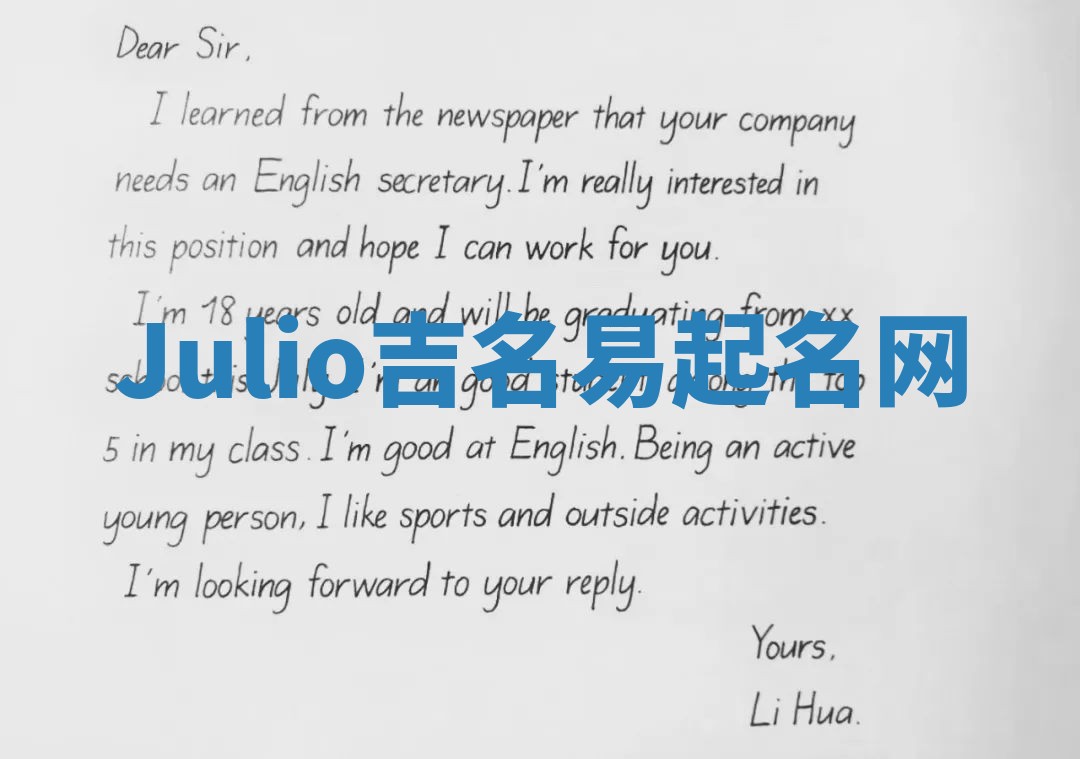 Dear Sir,
I learned from the newspaper that your company
needs an English secretary. I'm really interested in
this position and hope I can work for you.
I'm 18 years old and will be graduating from xx
Julio吉名易起名网
good top
5 in my class. I'm good at English. Being an active
young person, I like sports and outside activities.
I'm looking forward to your reply.
Yours,
Li Hua.